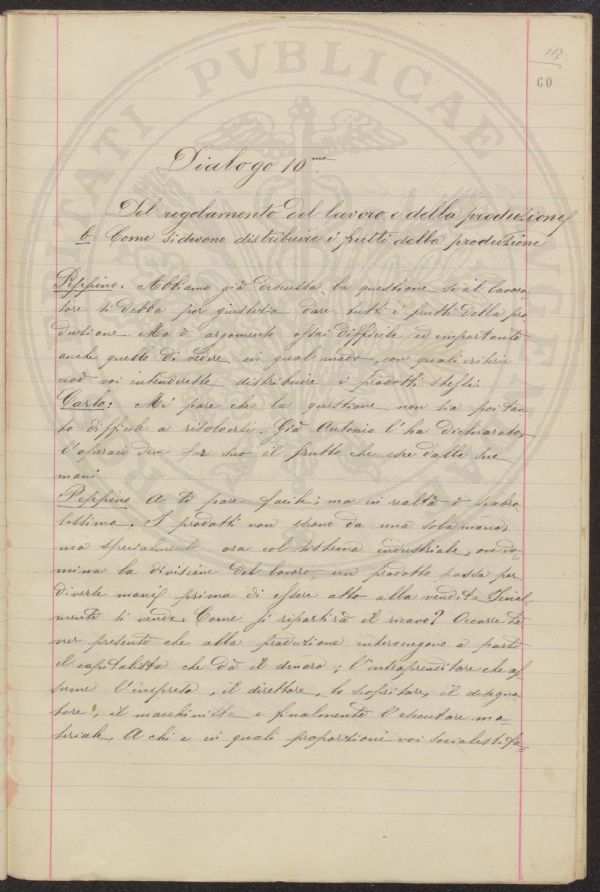 117
60
PVBLICAE
Dialogo 10mo
Del regolamento del lavoro e della produzione
6 Come si devono distribuire i frutti della produzione
Peppino. Abbiamo già discussa la questione se al lavora-
tore si debba per giustizia dare tutti i frutti della pro
duzione. Ma è argomento assai difficile ed importante
anche quello di vedere in qual modo, con quali criterii
cioè voi intendereste distribuire i prodotti stessi.
Carlo: Mi pare che la questione non sia poi tan-
to difficile a risolversi. Già Antonio l'ha dichiarato,
l'operaio deve far suo il frutto che esce dalle sue
mani
Peppino A te pare facile; ma in realtà è
I prodotti non escono da una sola mano,
ma specialmente ora col sistema industriale, ove do-
mina la divisione del lavoro, un prodotto passa per
diverse mani prima di essere atto alla vendita. Final
mente si vende. Come si ripartirà il ricavo? Occorre te
ner presente che alla produzione intervengono a parte
il capitalista che dà il denaro; l'intraprenditore che as
sume l'impresa, il direttore, lo il disegna
tore, il macchinista e finalmente l'esecutore ma-
teriale. A chi e in quali proporzioni voi socialisti fa-